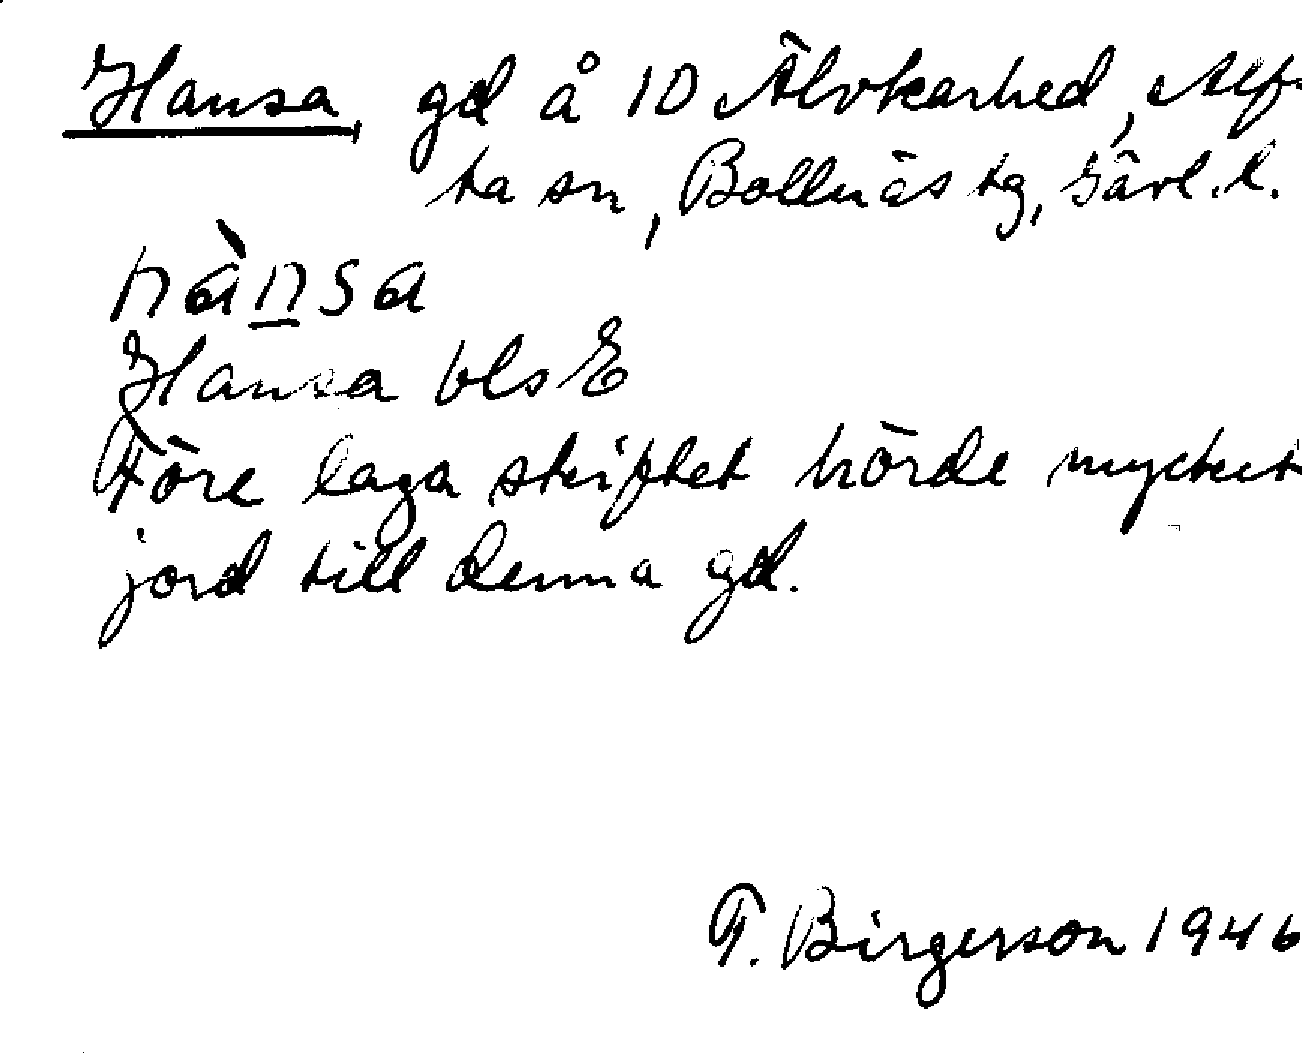 Hansa, gd å 1D Älvkarhed, Alf-
ta sn, Bollnäs tg, Gävl. l.
hànsa
Hansa bls E
Före laga skiftet hörde mycket
jord till denna gd.
F. Birgerson 1946